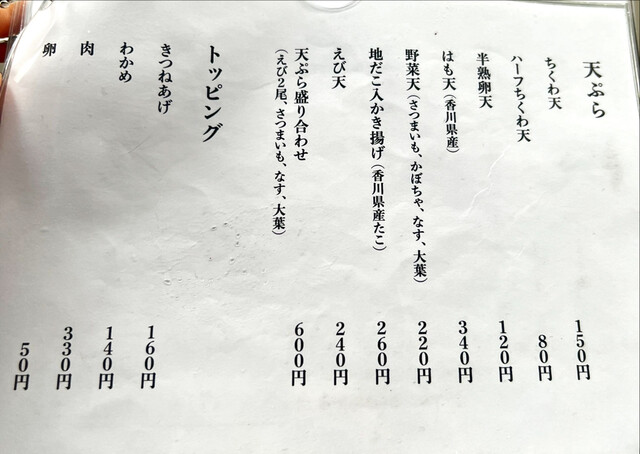 天ぷら
ちくわ天 150円
ハーフちくわ天 80円
半熟卵天 120円
はも天(香川県産) 340円
野菜天(さつまいも、かぼちゃ、なす、大葉) 220円
地だこ入かき揚げ(香川県産たこ) 260円
えび天 240円
天ぷら盛り合わせ 600円
(えび2尾、さつまいも、なす、大葉)
トッピング
きつねあげ 160円
わかめ 140円
肉 330円
卵 50円